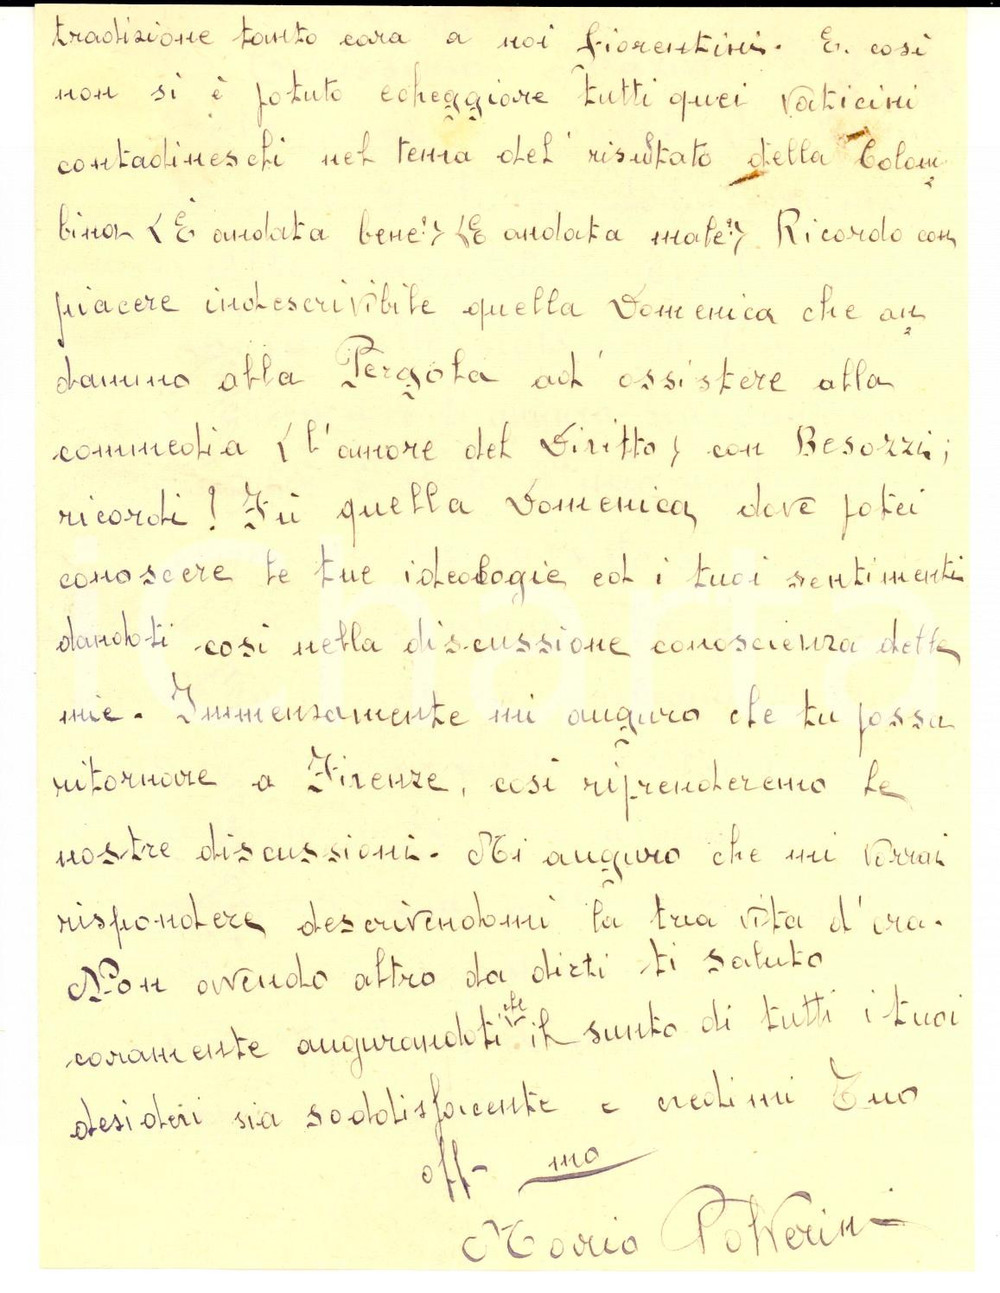 tradizione tanto cara a noi fiorentini. E così
non si è potuto echeggiare tutti quei vaticini
contadineschi nel tema del' risultato della Colom
bina (È andata bene?) (È andata male?) Ricordo con
piacere indescrivibile quella Domenica che an
dammo alla Pergola ad' assistere alla
commedia (l'amore del Diritto) con Besozzi;
ricordi! Fù quella Domenica, dove potei
conoscere le tue ideologie ed i tuoi sentimenti
dandoti così nella discussione conoscienza delle
mie. Immensamente mi auguro che tu possa
ritornare a Firenze, così riprenderemo le
nostre discussioni. Mi auguro che mi vorrai
rispondere descrivendomi la tua vita d'ora.
Non avendo altro da dirti ti saluto
caramente augurandoti che il sunto di tutti i tuoi
desideri sia soddisfacente e credimi Tuo
aff-mo
Mario Polverini